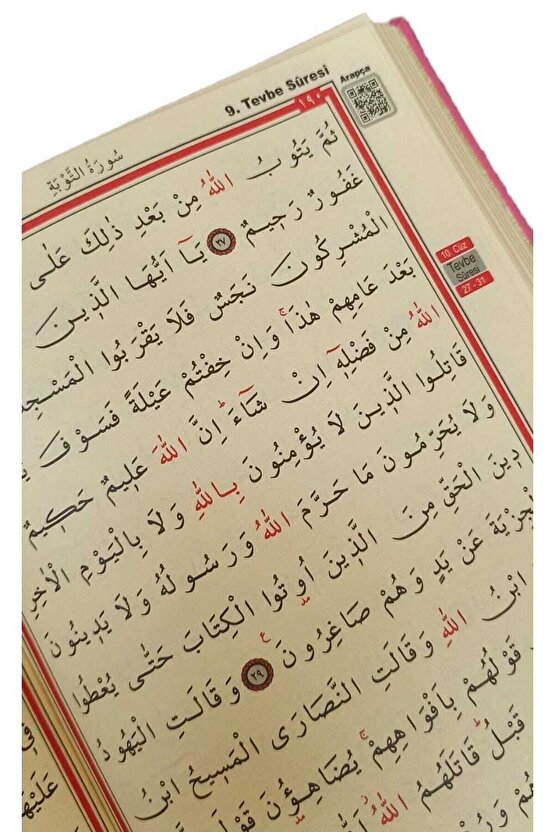 9. Tevbe Sûresi
Arapça
سُورَةُ التَّوْبَةِ
١٩٠
10. Cüz
Tevbe
Sûresi
27 - 31
ثُمَّ يَتُوبُ اللّٰهُ مِنْ بَعْدِ ذٰلِكَ عَلٰى
غَفُورٌ رَح۪يمٌ ﴿٢٧﴾ يَٓا اَيُّهَا الَّذ۪ينَ
الْمُشْرِكُونَ نَجَسٌ فَلَا يَقْرَبُوا الْمَسْجِدَ
بَعْدَ عَامِهِمْ هٰذَاۚ وَاِنْ خِفْتُمْ عَيْلَةً فَسَوْفَ
اللّٰهُ مِنْ فَضْلِه۪ٓ اِنْ شَٓاءَۜ اِنَّ اللّٰهَ عَل۪يمٌ حَك۪يمٌ
قَاتِلُوا الَّذ۪ينَ لَا يُؤْمِنُونَ بِاللّٰهِ وَلَا بِالْيَوْمِ الْاٰخِرِ
وَلَا يُحَرِّمُونَ مَا حَرَّمَ اللّٰهُ وَرَسُولُهُ وَلَا يَد۪ينُونَ
د۪ينَ الْحَقِّ مِنَ الَّذ۪ينَ اُو۫تُوا الْكِتَابَ حَتّٰى يُعْطُوا
الْجِزْيَةَ عَنْ يَدٍ وَهُمْ صَاغِرُونَ ﴿٢٩﴾ وَقَالَتِ الْيَهُودُ
ابْنُ اللّٰهِ وَقَالَتِ النَّصَارَى الْمَس۪يحُ ابْنُ
قَوْلُهُمْ بِاَفْوَاهِهِمْۚ يُضَاهِؤُ۫نَ قَوْلَ
قَبْلُۜ قَاتَلَهُمُ اللّٰهُۘ